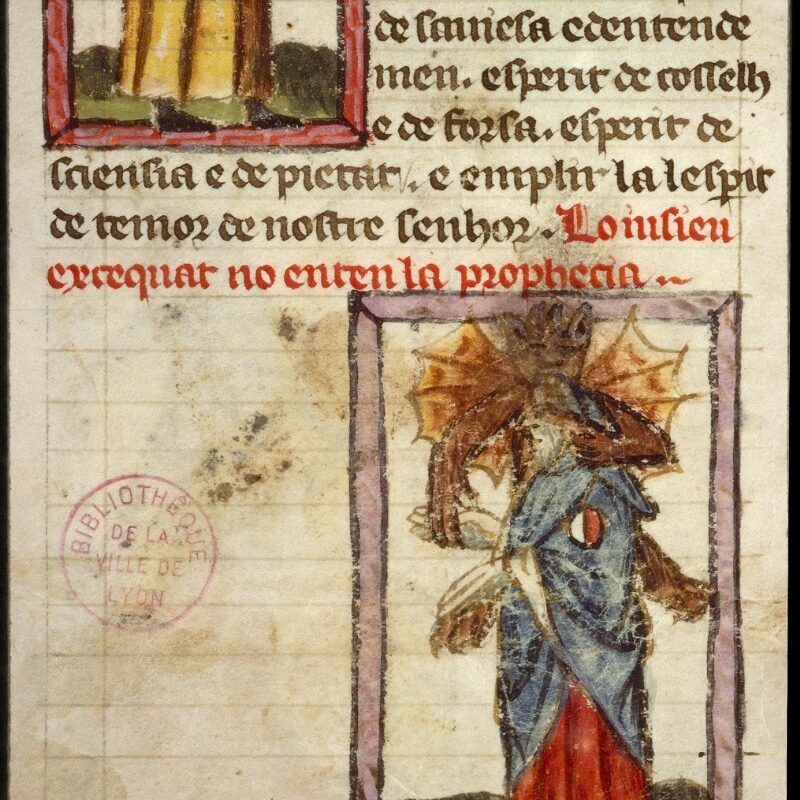 de saviesa e dentende
men. esperit de cosselh
e de forsa. esperit de
sciensia e de pietat. e emplir la lesperit
de temor de nostre senhor. Lo iusieu
excequat no enten la prophecia
BIBLIOTHÈQUE
DE LA
VILLE DE
LYON